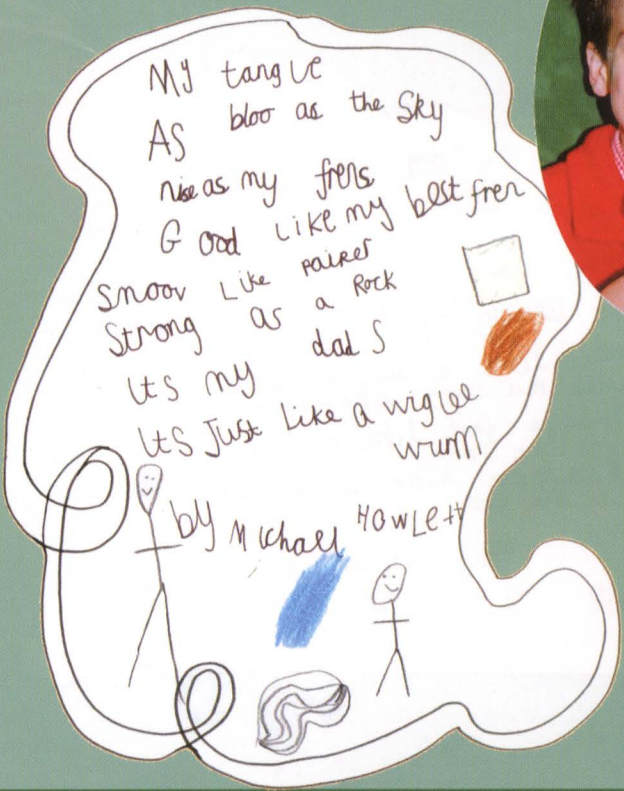 My tangue
As bloo as the Sky
nise as my frens
Good Like my best fren
snoov Like paiper
Strong as a Rock
Its my dad S
Its Just Like a wiglee
wurm
by Michael Howlett